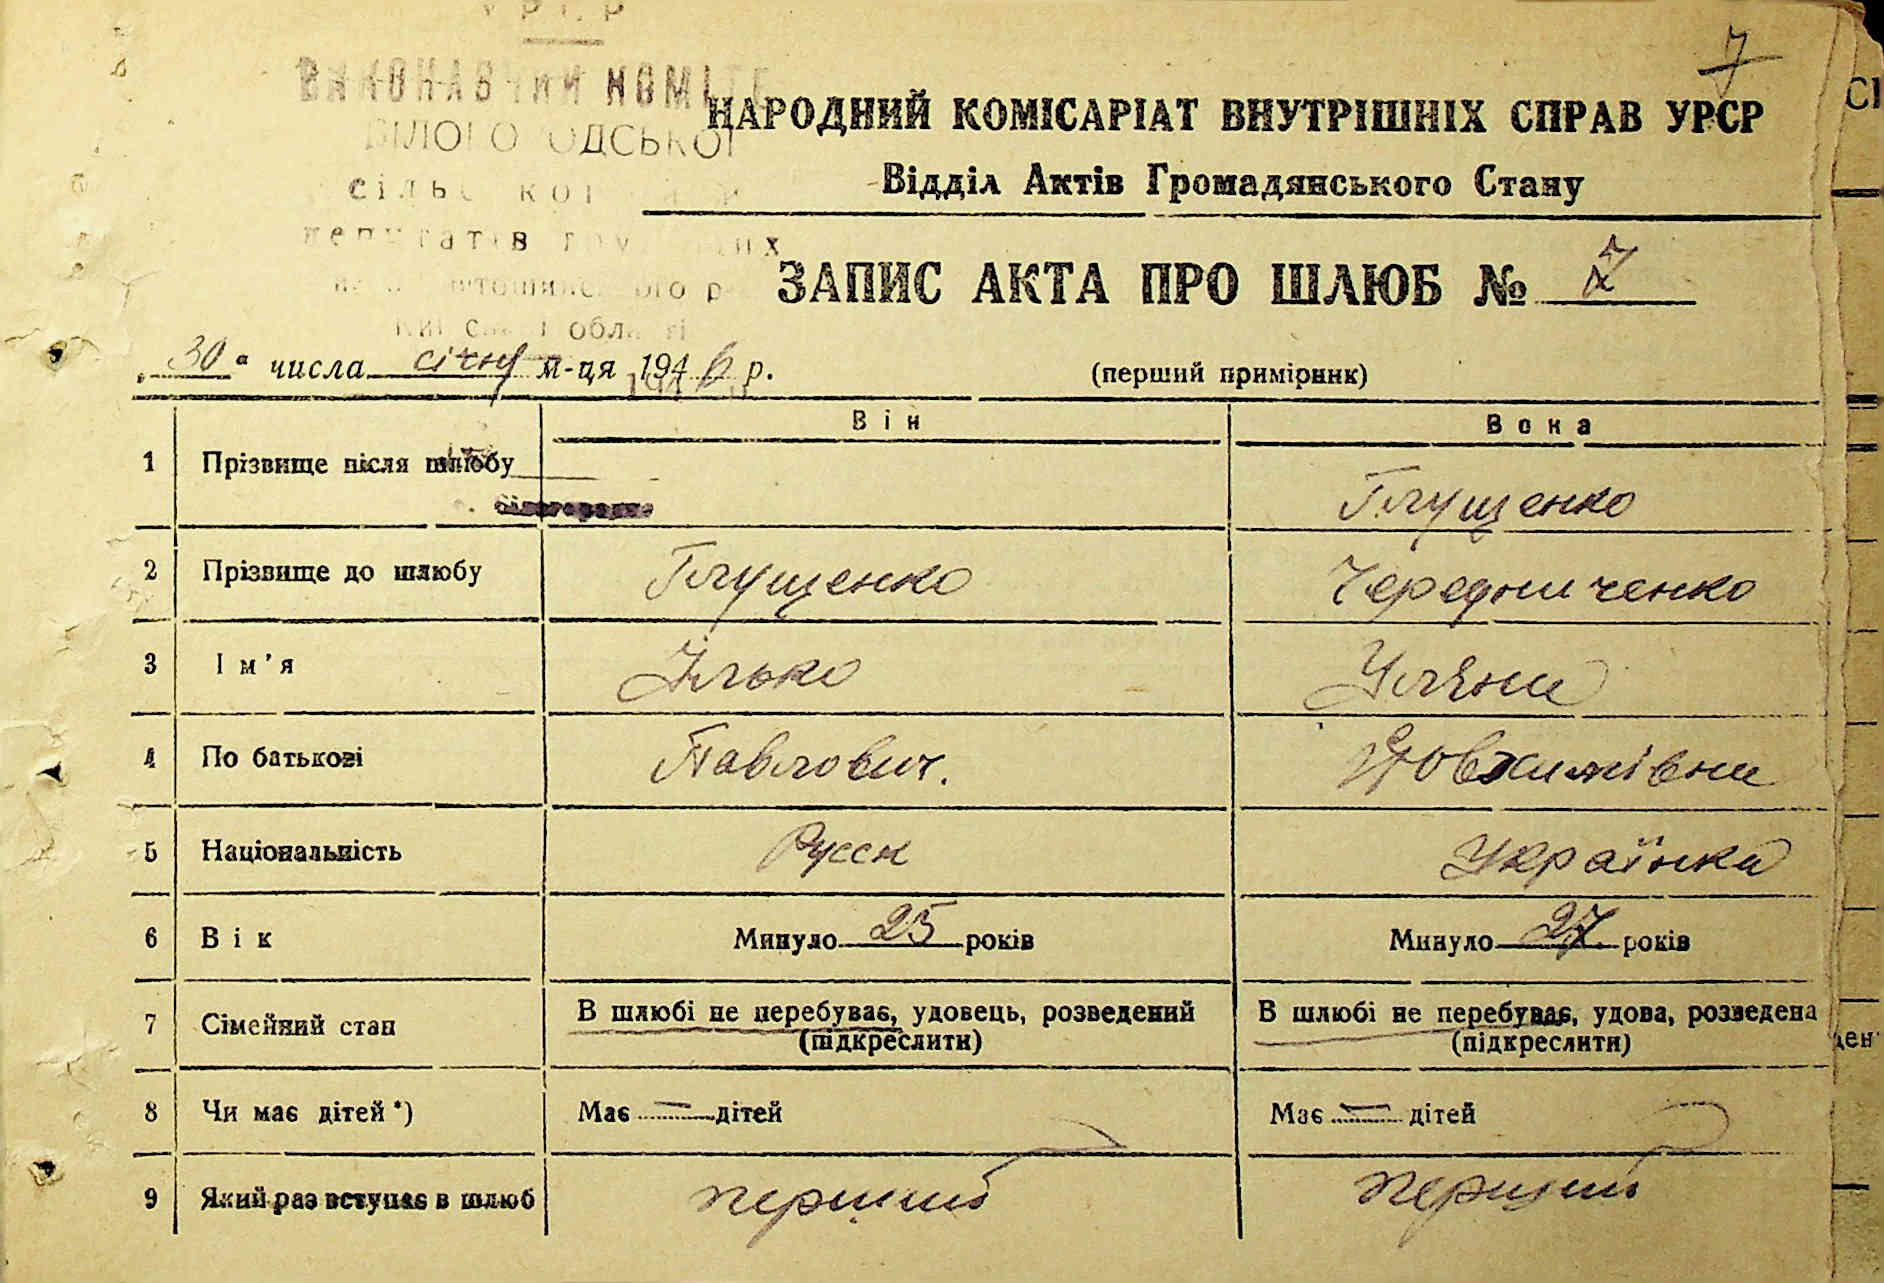 7
УРСР
ВИКОНАВЧИЙ КОМІТЕ
БІЛОГОРОДСЬКОЇ
НАРОДНИЙ КОМІСАРІАТ ВНУТРІШНІХ СПРАВ УРСР
Відділ Актів Громадянського Стану
депутатів трудящих
ЗАПИС АКТА ПРО ШЛЮБ № 7
області
„30“ числа січня м-ця 1946 р.
(перший примірник)
Він
Вона
1 Прізвище після шлюбу
Глущенко
2 Прізвище до шлюбу Глущенко Чередниченко
3 Ім'я Ілько Уляна
4 По батькові Павлович.
5 Національність Русск Українка
6 Вік Минуло 25 років Минуло 27 років
7 Сімейний стан В шлюбі не перебуває, удовець, розведений (підкреслити) В шлюбі не перебуває, удова, розведена (підкреслити)
8 Чи має дітей*) Має — дітей Має — дітей
9 Який раз вступає в шлюб перший перший